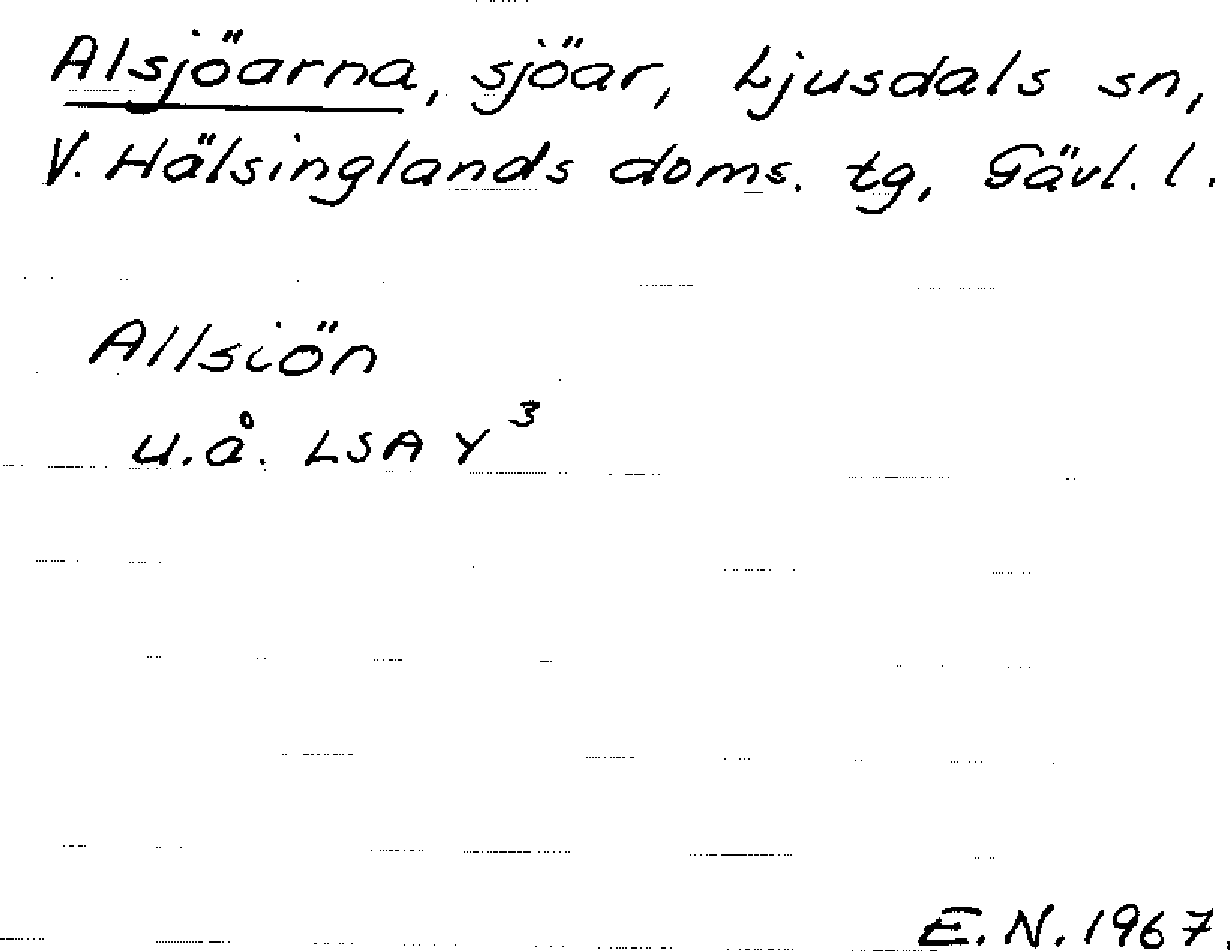 Alsjöarna, sjöar, Ljusdals sn,
V. Hälsinglands doms. tg, Gävl. l.
Allsiön
u.å. LSA Y³
E.N. 1967.